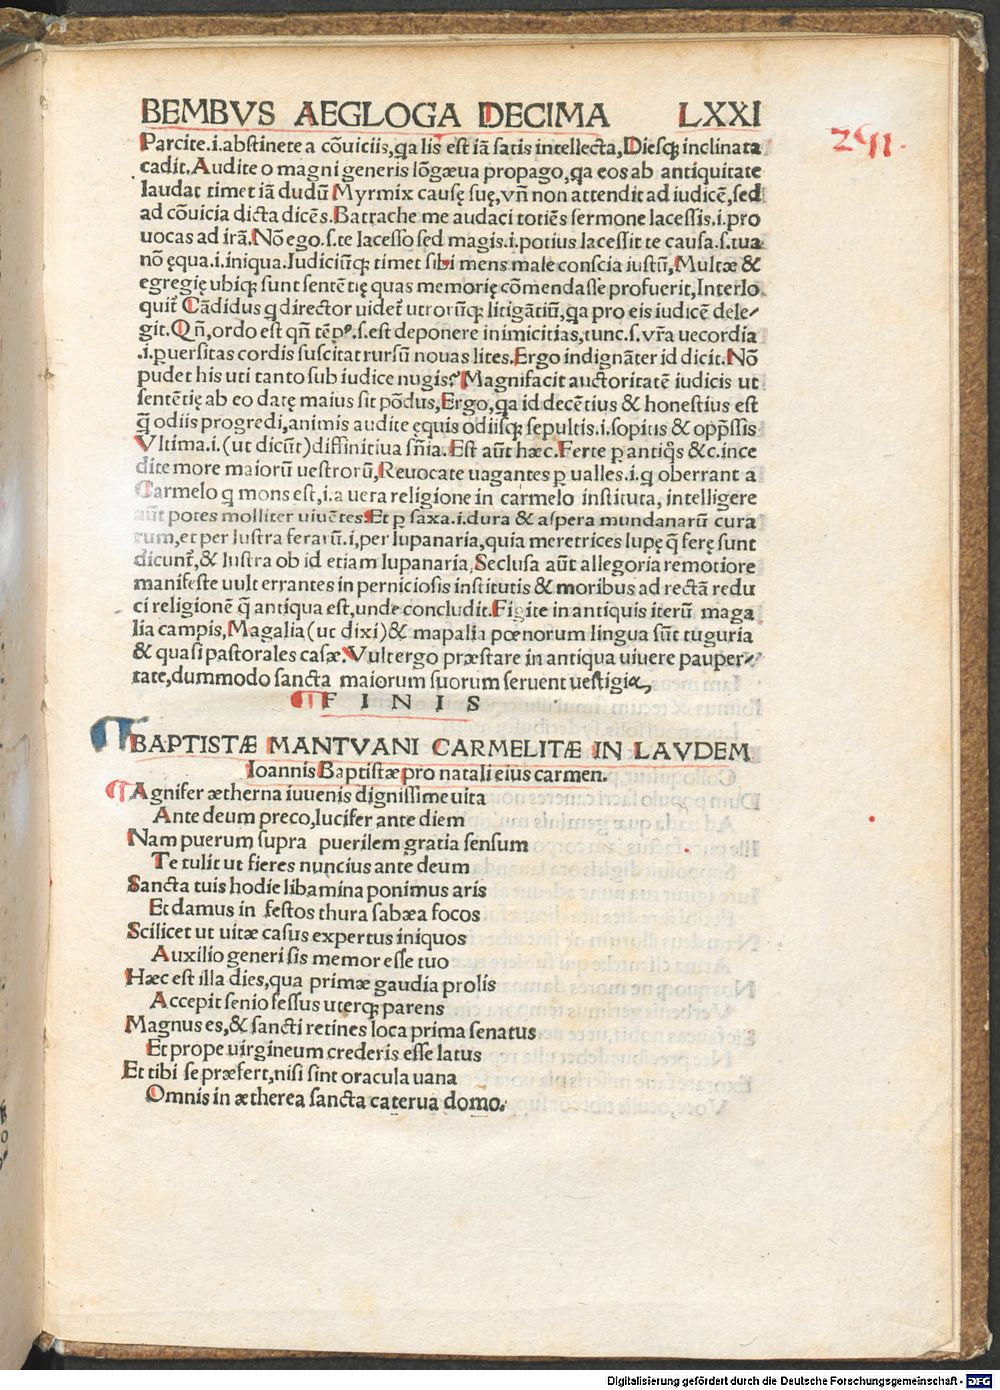 BEMBVS AEGLOGA DECIMA LXXI
291.
Parcite.i.abstinete a cōuiciis,qa lis est iā satis intellecta,Diesq; inclinata
cadit.Audite o magni generis lōgæua propago,qa eos ab antiquitate
laudat timet iā dudū Myrmix causę suę,vñ non attendit ad iudicē,sed
ad cōuicia dicta dicēs.Batrache me audaci totiēs sermone lacessis.i.pro
uocas ad irā.Nō ego.s.te lacesso sed magis.i.potius lacessit te causa.s.tua
nō ęqua.i.iniqua.Iudiciūq; timet sibi mens male conscia iustū,Multæ &
egregię ubiq; sunt sentētię quas memorię cōmendasse profuerit,Interlo
quit̃ Cādidus q director uidet̃ utrorūq; litigātiū,qa pro eis iudicē dele-
git.Qñ,ordo est qñ tēpꝰ.s.est deponere inimicitias,tunc.s.vr̄a uecordia
.i.puersitas cordis suscitat rursū nouas lites.Ergo indignāter id dicit.Nō
pudet his uti tanto sub iudice nugis?Magnifacit auctoritatē iudicis ut
sentētię ab eo datę maius sit pōdus,Ergo,qa id decētius & honestius est
q̄ odiis progredi,animis audite ęquis odiisq; sepultis.i.sopitis & opp̄ssis
Vltima.i.(ut dicūt)diffinitiua sñia.Est aūt hæc.Ferte p antiq̊s &c.ince
dite more maiorū uestrorū,Reuocate uagantes p ualles.i.q oberrant a
Carmelo q mons est,i.a uera religione in carmelo instituta, intelligere
aūt potes molliter uiuētes.Et p saxa.i.dura & aspera mundanarū cura
rum,et per lustra ferarū.i,per lupanaria,quia meretrices lupę q̄ ferę sunt
dicunt̃,& lustra ob id etiam lupanaria,Seclusa aūt allegoria remotiore
manifeste uult errantes in perniciosis institutis & moribus ad rectā redu
ci religionē q̄ antiqua est,unde concludit.Figite in antiquis iterū maga
lia campis,Magalia(ut dixi)& mapalia pœnorum lingua sūt tuguria
& quasi pastorales casæ.Vult ergo præstare in antiqua uiuere pauper-
tate,dummodo sancta maiorum suorum seruent uestigia,
¶ F I N I S
¶ BAPTISTÆ MANTVANI CARMELITÆ IN LAVDEM
Ioannis Baptistæ pro natali eius carmen.
¶ Agnifer ætherna iuuenis dignissime uita
Ante deum preco,lucifer ante diem
Nam puerum supra puerilem gratia sensum
Te tulit ut fieres nuncius ante deum
Sancta tuis hodie libamina ponimus aris
Et damus in festos thura sabæa focos
Scilicet ut uitæ casus expertus iniquos
Auxilio generi sis memor esse tuo
Hæc est illa dies,qua primæ gaudia prolis
Accepit senio fessus uterq; parens
Magnus es,& sancti retines loca prima senatus
Et prope uirgineum crederis esse latus
Et tibi se præfert,nisi sint oracula uana
Omnis in ætherea sancta caterua domo.
Digitalisierung gefördert durch die Deutsche Forschungsgemeinschaft - DFG